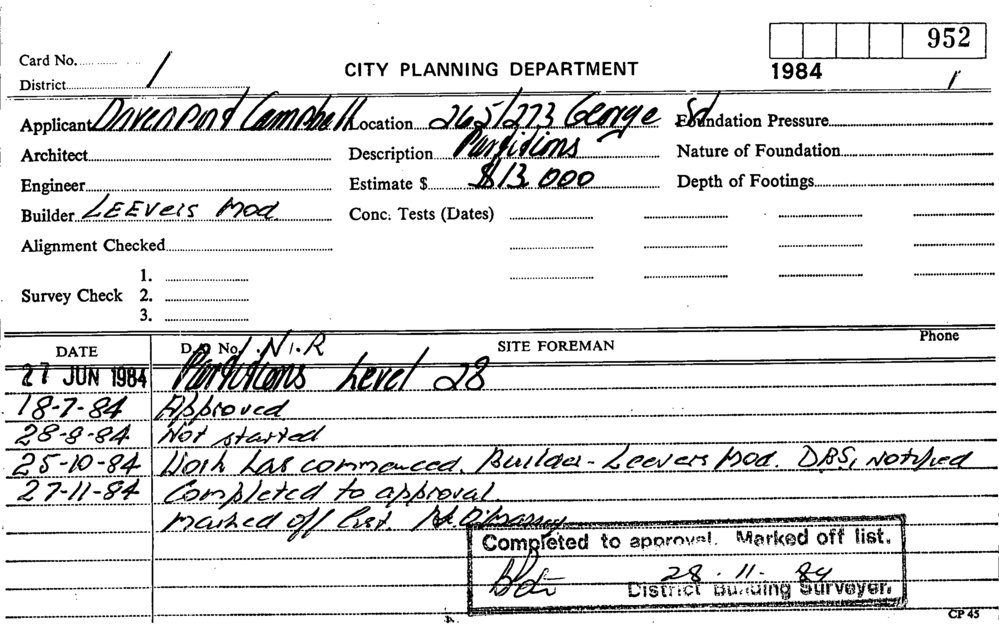 952
Card No. /
CITY PLANNING DEPARTMENT
1984
District
1
Applicant Davenport Campbell Location 265/273 George St Foundation Pressure
Architect Description Partitions Nature of Foundation
Engineer Estimate $ $13 000 Depth of Footings
Builder LEEVers Mod Conc. Tests (Dates)
Alignment Checked
1.
Survey Check 2.
3.
DATE D.D No. N.R SITE FOREMAN Phone
27 JUN 1984 Partitions Level 28
18-7-84 Approved
28-8-84 Not started
25-10-84 Work has commenced. Builder - Leevers Mod. DBS, Notified
27-11-84 Completed to approval
marked off list
Completed to approval. Marked off list.
28. 11. 84
District Building Surveyor.
CP 45